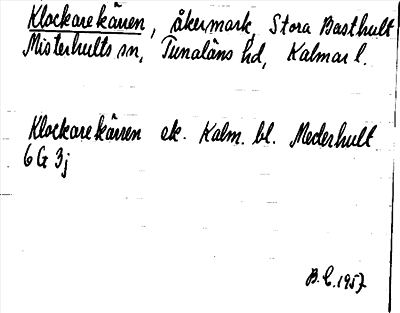 Klockarekärren, åkermark, Stora Basthult
Misterhults sn, Tunaläns hd, Kalmar l.
Klockarekärren ek. Kalm. bl. Mederhult
6G 3j
B.C. 1957